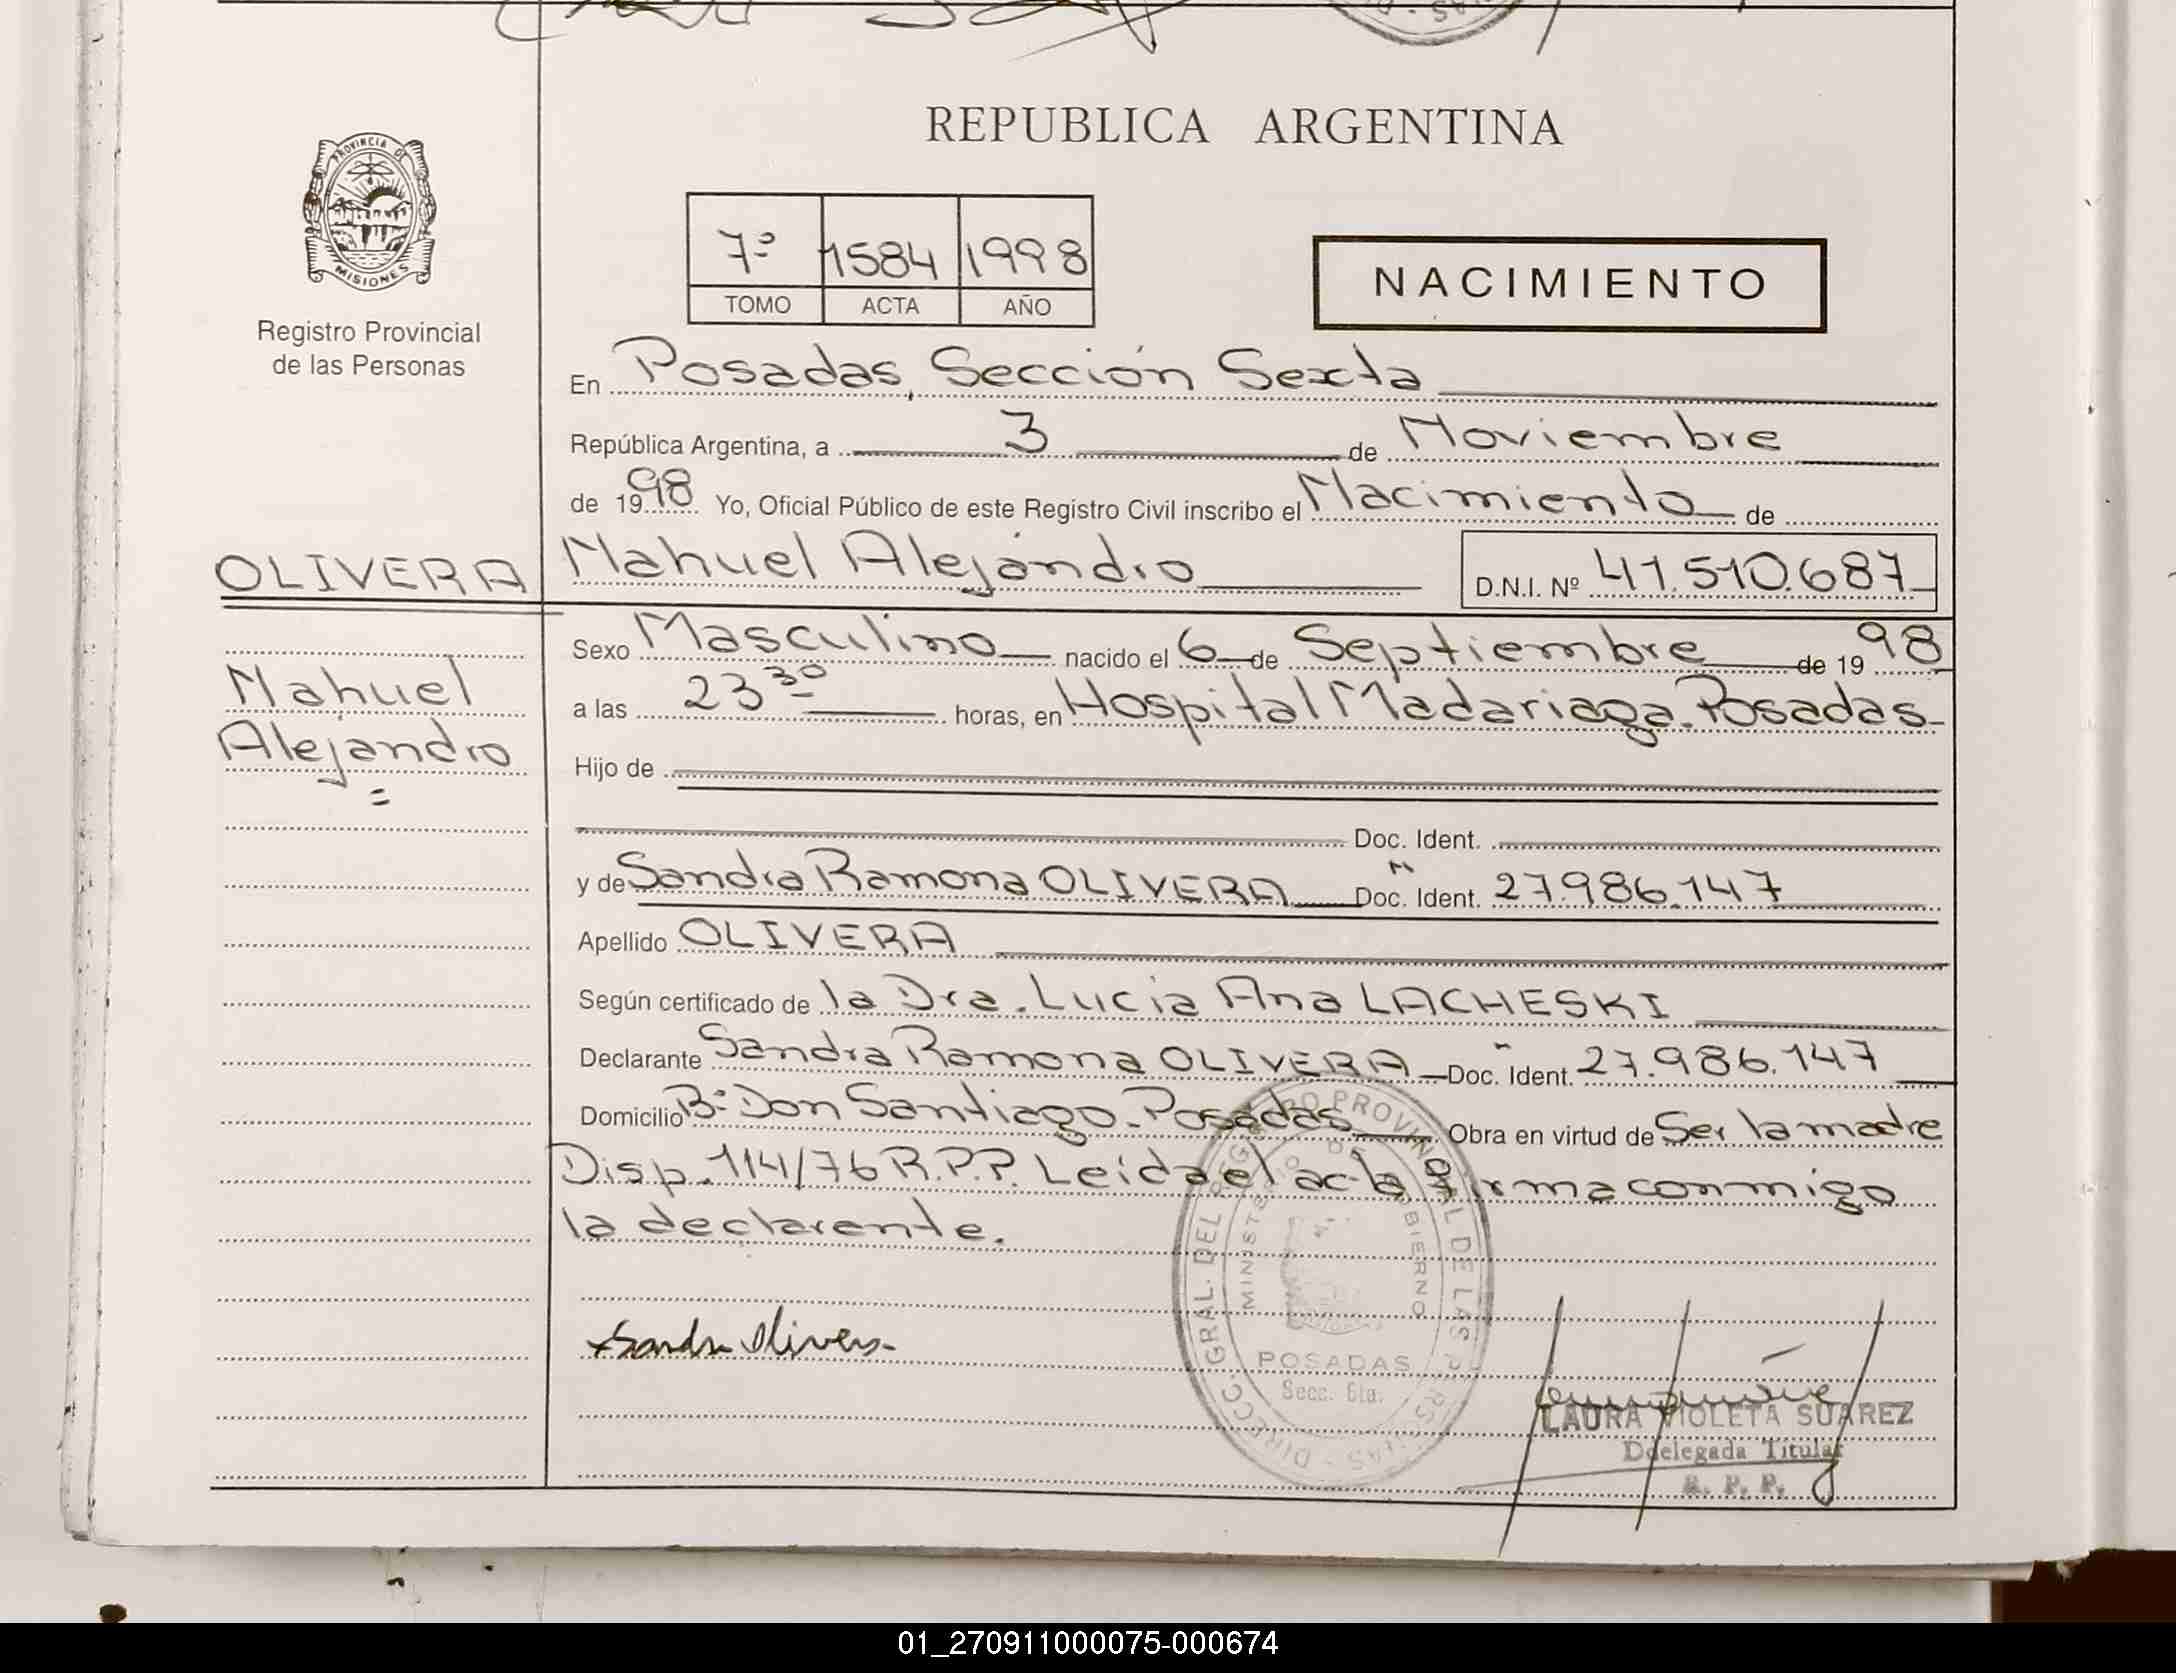 REPUBLICA ARGENTINA
PROVINCIA DE
MISIONES
Registro Provincial
de las Personas
7º 1584 1998
TOMO ACTA AÑO
NACIMIENTO
En Posadas, Sección Sexta
República Argentina, a 3 de Noviembre
de 1998 Yo, Oficial Público de este Registro Civil inscribo el Nacimiento de
OLIVERA Nahuel Alejandro D.N.I. Nº 41.510.687
Sexo Masculino nacido el 6 de Septiembre de 1998
Nahuel
a las 23 30 horas, en Hospital Madariaga. Posadas
Alejandro
Hijo de
Doc. Ident.
y de Sandra Ramona OLIVERA Doc. Ident. 27.986.147
Apellido OLIVERA
Según certificado de la Dra. Lucia Ana LACHESKI
Declarante Sandra Ramona OLIVERA Doc. Ident. 27.986.147
Domicilio Bº Don Santiago. Posadas Obra en virtud de Ser la madre
Disp. 114/76 R.P.P. Leída el acta firma conmigo
la declarante.
Sandra Olivera
DIRECC. GRAL. DEL REGISTRO PROVINCIAL DE LAS PERSONAS
MINISTERIO DE GOBIERNO
POSADAS
Secc. 6ta.
LAURA VIOLETA SUAREZ
Ddelegada Titular
R. P. P.
01_270911000075-000674